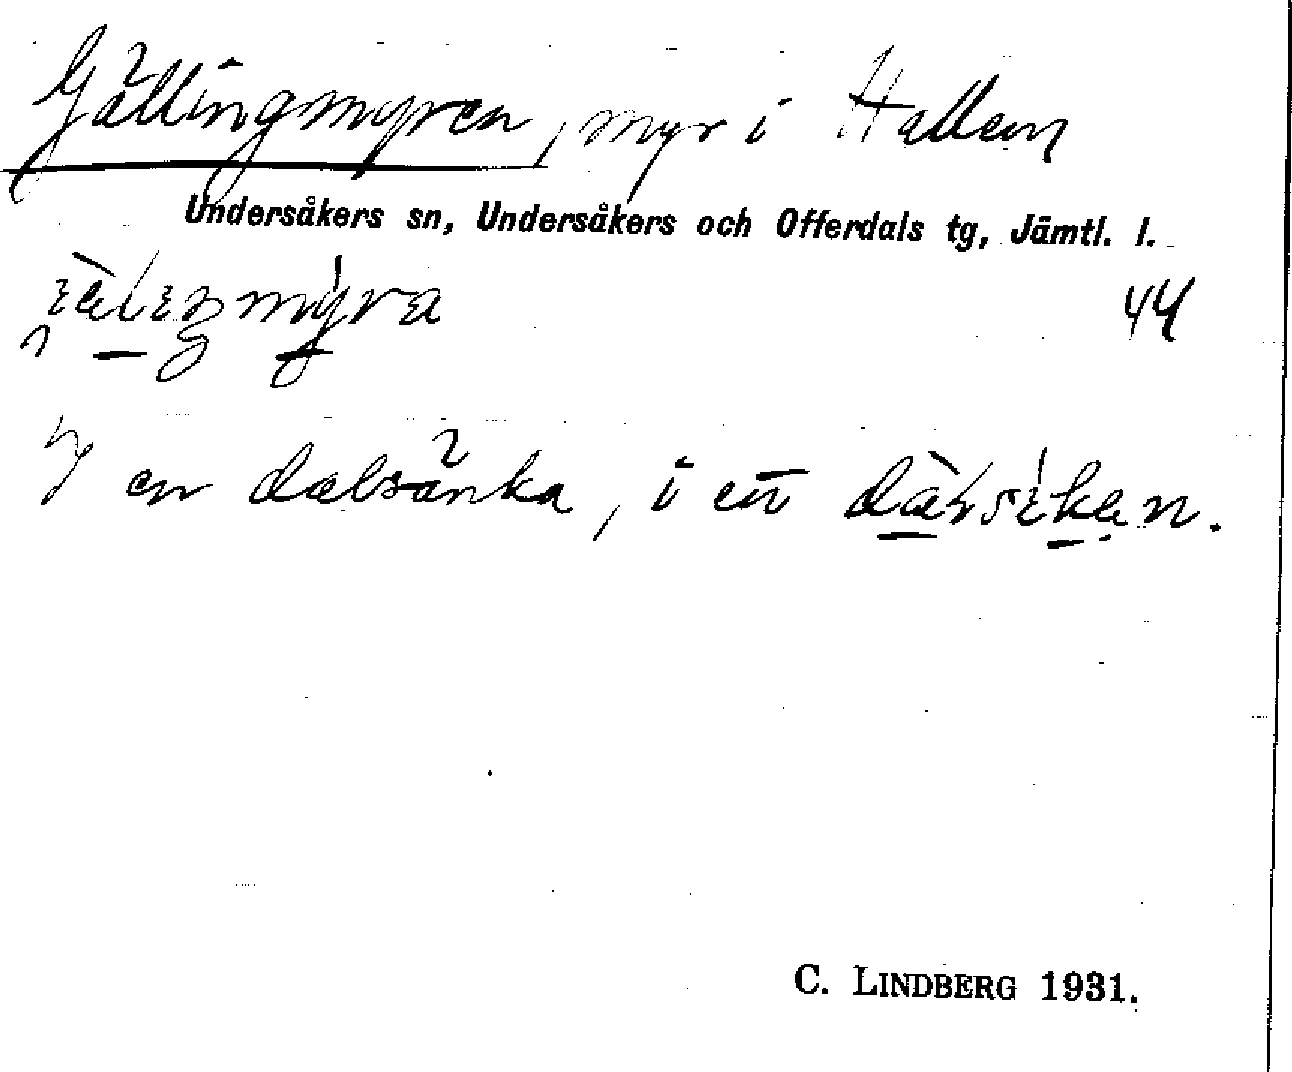 Gällingmyren, myr i Hallen
Undersåkers sn, Undersåkers och Offerdals tg, Jämtl. l.
44
I en dalsänka, i en
C. LINDBERG 1931.